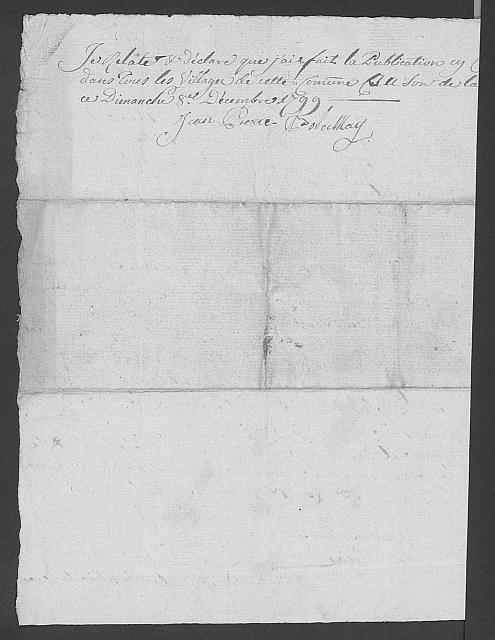 Je Relate & déclare que j'ai fait la Publication cy
dans Tous les Villages de cette Comune Au Son de la
ce Dimanche 8me Décembre 1799
Jean Pierre